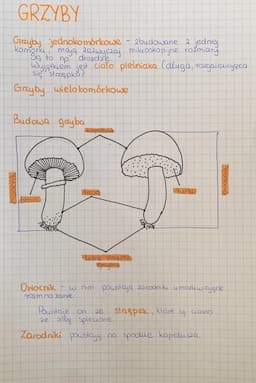 GRZYBY
Grzyby jednokomórkowe - zbudowane z jednej
komórki, mają zazwyczaj mikroskopijne rozmiary
Są to np. drożdże.
Wyjątkiem jest ciało pleśniaka (długa, rozgałęziająca
się strzępka)
Grzyby wielokomórkowe
Budowa grzyba
kapelusz
owocnik
blaszki
trzon
rurki
owocnik
grzybnia
Owocnik - w nim powstają zarodniki umożliwiające
rozmnażanie.
Powstaje on ze strzępek, które są ciasno
ze sobą splecione.
Zarodniki powstają na spodzie kapelusza.